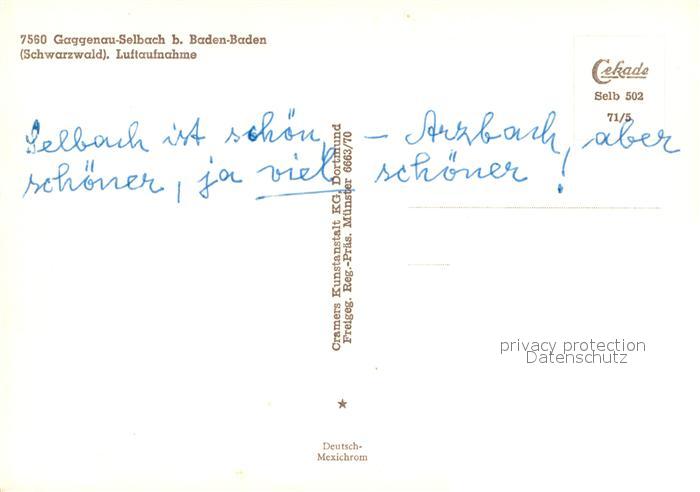 7560 Gaggenau-Selbach b. Baden-Baden
(Schwarzwald). Luftaufnahme
Cekade
Selb 502
71/5
Selbach ist schön, – Arzbach, aber
schöner, ja viel schöner!
Cramers Kunstanstalt KG. Dortmund
Freigeg. Reg.-Präs. Münster 6663/70
privacy protection
Datenschutz
Deutsch-
Mexichrom